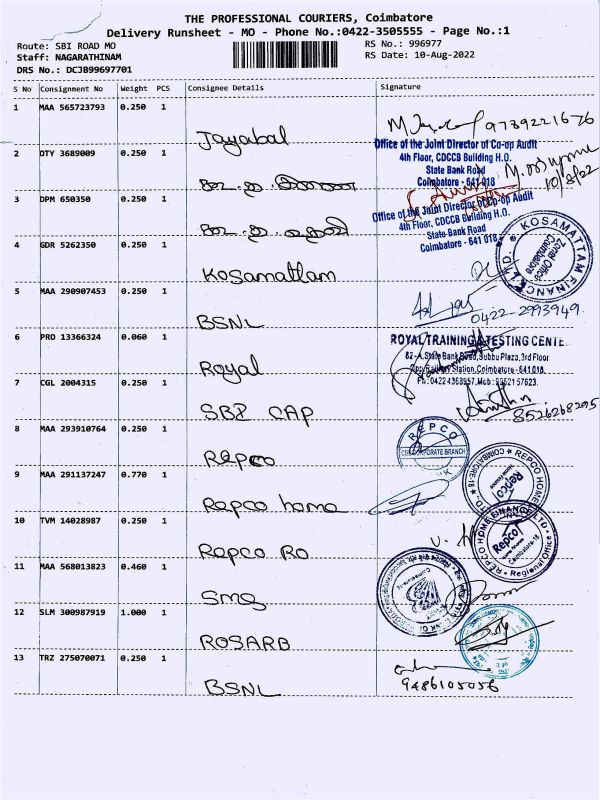 THE PROFESSIONAL COURIERS, Coimbatore
Delivery Runsheet - MO - Phone No.:0422-3505555 - Page No.:1
Route: SBI ROAD MO
RS No.: 996977
Staff: NAGARATHINAM
RS Date: 10-Aug-2022
DRS No.: DCJB99697701
S No Consignment No Weight PCS Consignee Details Signature
1 MAA 565723793 0.250 1
Jayabal
9789221676
2 OTY 3689009 0.250 1
Office of the Joint Director of Co-op Audit
4th Floor, CDCCB Building H.O.
State Bank Road
Coimbatore - 641 018
10/8/22
3 DPM 650350 0.250 1
Office of the Joint Director of Co-op Audit
4th Floor, CDCCB Building H.O.
State Bank Road
Coimbatore - 641 018
4 GDR 5262350 0.250 1
Kosamattam
KOSAMATTAM FINANCE LTD
Zonal Office
Coimbatore
5 MAA 290907453 0.250 1
BSNL
0422-2993949
6 PRO 13366324 0.060 1
Royal
ROYAL TRAINING & TESTING CENTE
82-A, State Bank Road, Subbu Plaza, 3rd Floor
Opp. Railway Station, Coimbatore - 641 018.
Ph : 0422 4368957, Mob : 99521 57623.
7 CGL 2004315 0.250 1
SBI CAP
8526268295
8 MAA 293910764 0.250 1
Repco
REPCO
CBE CORPORATE BRANCH
9 MAA 291137247 0.770 1
Repco home
REPCO HOME
Repco
COIMBATORE-18
10 TVM 14028987 0.250 1
Repco RO
REPCO HOME FINANCE LTD.
Repco
Coimbatore-18
Regional Office
11 MAA 568013823 0.460 1
SMG
12 SLM 300987919 1.000 1
ROSARB
13 TRZ 275070071 0.250 1
BSNL
9486105056